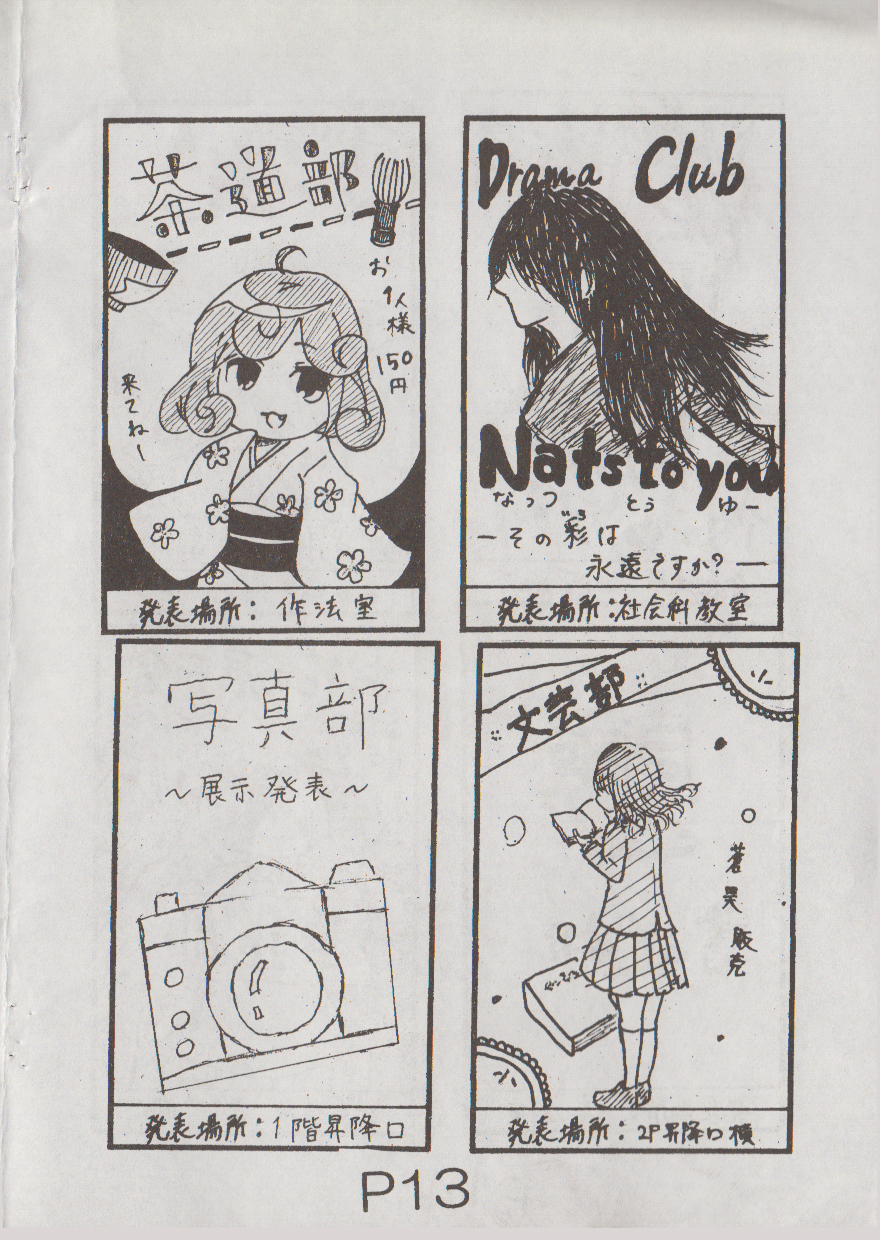 茶道部
お1人様150円
来てねー
発表場所：作法室
Drama Club
Nats to you
なっつ とぅ ゆー
ーその彩は
いろ
永遠ですか？ー
発表場所：社会科教室
写真部
～展示発表～
発表場所：1階昇降口
文芸部
蒼昊販売
発表場所：2F昇降口横
P13